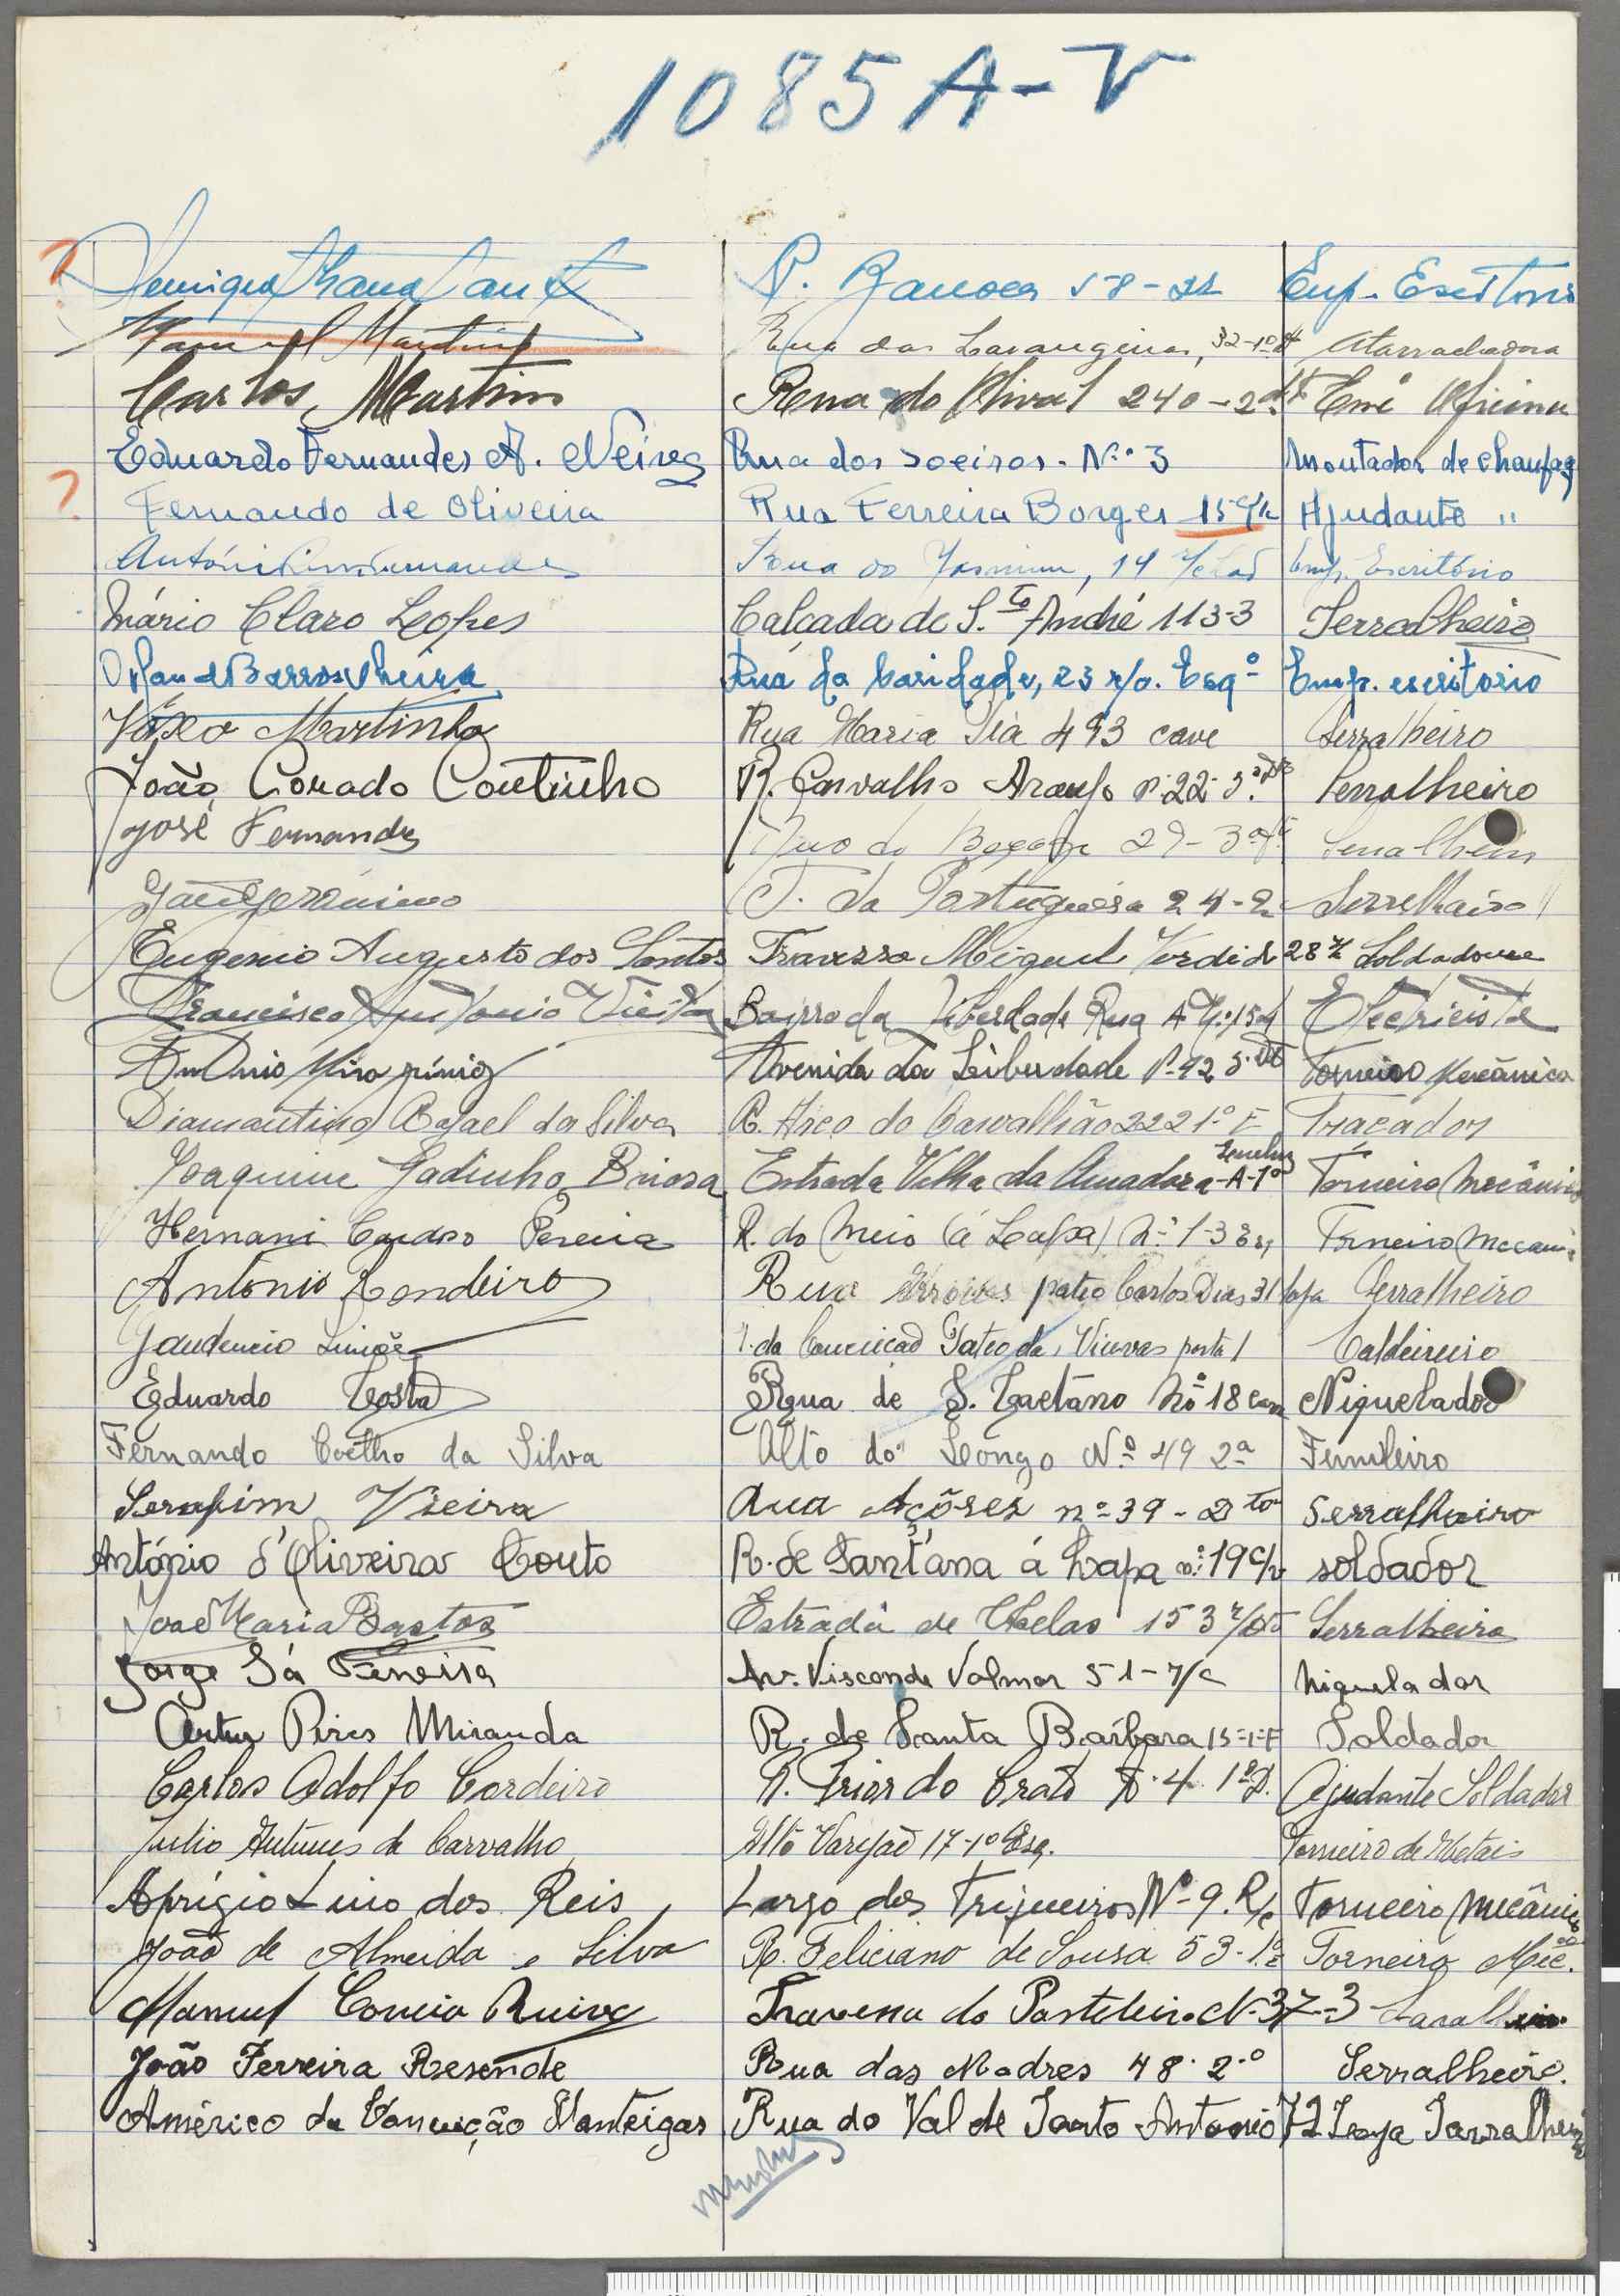 1085 A-V
? R. 58-2 Emp.
Manuel Martins Rua das Larangeiras, 32-1º Atarrachadora
Carlos Martins Rua do Olival 240-2º
Eduardo Fernandes A. Neives Rua dos Soeiros. N.º 3 Montador de chaufag
? Fernando de Oliveira Rua Ferreira Borges 15 c/v Ajudante "
António Fernandes Rua do Jasmim, 14 Emp. Escritório
Mário Claro Lopes Calçada de S.to André 113-3 Serralheiro
Barros Rua da Caridade, 23 r/c. Esqº Emp. escritorio
Martinho Rua Maria Pia 493 cave Serralheiro
João Corado Coutinho R. Carvalho Araujo nº 22-3º Dto Serralheiro
José Fernandes 29-3º Serralheiro
Jerónimo T. da Portuguesa 24-2 Serralheiro
Eugenio Augusto dos Santos Travessa Miguel Verdial 28
Francisco António Bairro da Liberdade Rua A Nº 15 Electricista
Avenida da Liberdade Nº 92 5º Dt Torneiro Mecânico
Diamantino Rafael da Silva R. Arco do Carvalhão 222 1º E Traçador
Joaquim Gadinho Briosa Estrada Velha da Amadora - A-1º Torneiro Mecânico
Hernani Cardoso Pereira R. do Meio (á Lapa) Nº 1-3 Esq Torneiro Mecani
António Rondeiro Rua Arroios pateo Carlos Dias 31 loja Serralheiro
Gaudencio Simões pateo das porta 1 Caldeireiro
Eduardo Costa Rua de S. Caetano Nº 18 cave Niquelador
Fernando Coelho da Silva Alto do Longo Nº 49 2ª Funileiro
Serafim Vieira Rua Açôres nº 39 - Serralheiro
António d'Oliveira Couto R. de Sant'ana á Lapa nº 19 c/v soldador
José Maria Bastos Estrada de Chelas 153 r/c Serralheiro
Jorge Sá Ferreira Av. Visconde Valmor 51-r/c Niquelador
Artur Pires Miranda R. de Santa Barbara 15-1-E Soldador
Carlos Adolfo Cordeiro R. Prior do Crato Nº 4 1º D. Ajudante Soldador
Julio Antunes de Carvalho Alto Varejão 17-1º Esq. Torneiro de Metais
Aprigio Lino dos Reis Largo dos Trigueiros Nº 9. R/c Torneiro Mecânico
João de Almeida e Silva R. Feliciano de Sousa 53-1º E Torneiro Mec.
Manuel Correia Ruivo Travessa do Pasteleiro Nº 37-3
João Ferreira Resende Rua das Madres 48-2º Serralheiro.
Américo da Conceição Manteigas Rua do Val de Santo Antonio 72 Loja Sarralheiro